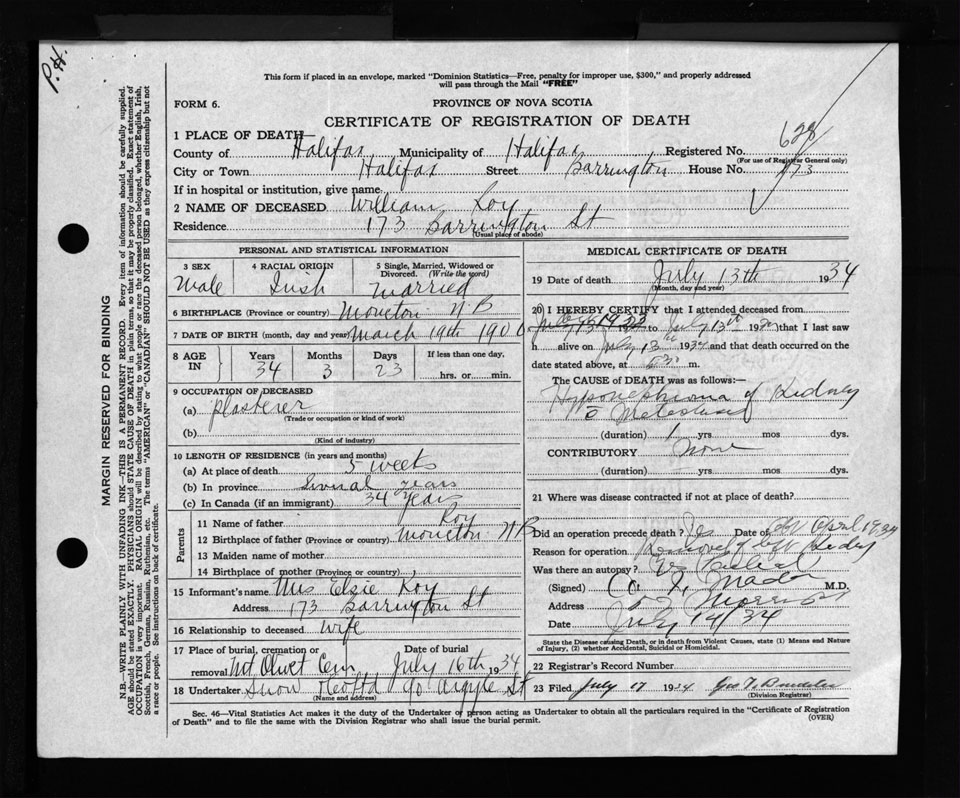 P.H.
This form if placed in an envelope, marked "Dominion Statistics—Free, penalty for improper use, $300," and properly addressed
will pass through the Mail "FREE"
FORM 6.
PROVINCE OF NOVA SCOTIA
CERTIFICATE OF REGISTRATION OF DEATH
628
1 PLACE OF DEATH
County of Halifax Municipality of Halifax Registered No.
(For use of Registrar General only)
City or Town Halifax Street Barrington House No. 173
If in hospital or institution, give name
2 NAME OF DECEASED William Roy
Residence 173 Barrington St
(Usual place of abode)
PERSONAL AND STATISTICAL INFORMATION
3 SEX Male
4 RACIAL ORIGIN Irish
5 Single, Married, Widowed or Divorced. (Write the word) Married
6 BIRTHPLACE (Province or country) Moncton N B
7 DATE OF BIRTH (month, day and year) March 19th 1900
8 AGE IN Years 34 Months 3 Days 23 If less than one day, hrs. or min.
9 OCCUPATION OF DECEASED
(a) Plasterer
(Trade or occupation or kind of work)
(b)
(Kind of industry)
10 LENGTH OF RESIDENCE (in years and months)
(a) At place of death 5 weeks
(b) In province several years
(c) In Canada (if an immigrant) 34 years
Parents
11 Name of father Roy
12 Birthplace of father (Province or country) Moncton N B
13 Maiden name of mother
14 Birthplace of mother (Province or country)
15 Informant's name Mrs Elsie Roy
Address 173 Barrington St
16 Relationship to deceased Wife
17 Place of burial, cremation or Date of burial
removal Mt Olivet Cem July 16th 1934
18 Undertaker Snow & Co Ltd 90 Argyle St
(Name and address)
MEDICAL CERTIFICATE OF DEATH
19 Date of death July 13th 1934
(Month, day and year)
20 I HEREBY CERTIFY that I attended deceased from
1933 to July 13th 19 that I last saw
h alive on July 13th 1934 and that death occurred on the
date stated above, at m.
The CAUSE of DEATH was as follows:—
Hypernephroma of Kidney
c Metastases
(duration) 1 yrs. mos. dys.
CONTRIBUTORY None
(duration) yrs mos. dys.
21 Where was disease contracted if not at place of death?
Did an operation precede death? Yes Date of April 1934
Reason for operation Removal of Kidney
Was there an autopsy?
(Signed) Mader M.D.
Address Morris St
Date July 14/34
State the Disease causing Death, or in death from Violent Causes, state (1) Means and Nature
of Injury, (2) whether Accidental, Suicidal or Homicidal.
22 Registrar's Record Number
23 Filed July 17 1934
(Division Registrar)
Sec. 46—Vital Statistics Act makes it the duty of the Undertaker or person acting as Undertaker to obtain all the particulars required in the "Certificate of Registration
of Death" and to file the same with the Division Registrar who shall issue the burial permit.
(OVER)
MARGIN RESERVED FOR BINDING
N.B.—WRITE PLAINLY WITH UNFADING INK—THIS IS A PERMANENT RECORD. Every item of information should be carefully supplied.
AGE should be stated EXACTLY. PHYSICIANS should STATE CAUSE OF DEATH in plain terms, so that it may be properly classified. Exact statement of
OCCUPATION is very important. RACIAL ORIGIN will be described by stating to what people or race the deceased person belonged, whether English, Irish,
Scottish, French, German, Russian, Ruthenian, etc. The terms "AMERICAN" or "CANADIAN" SHOULD NOT BE USED as they express citizenship but not
a race or people. See instructions on back of certificate.